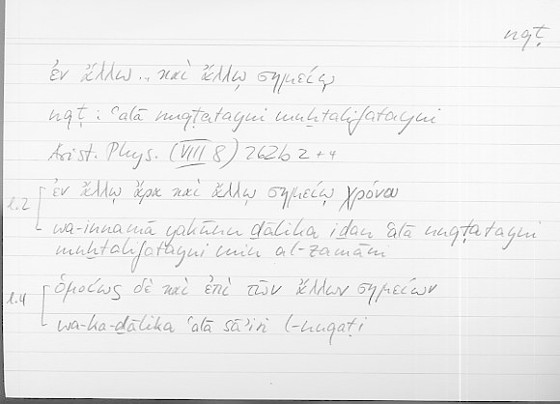 nqṭ
ἐν ἄλλῳ .. καὶ ἄλλῳ σημείῳ
nqṭ : ʿalā nuqṭatayni muḫtalifatayni
Arist. Phys. (VIII 8) 262b 2 + 4
l.2 ἐν ἄλλῳ ἄρα καὶ ἄλλῳ σημείῳ χρόνου
wa-innamā yakūnu ḏālika iḏan ʿalā nuqṭatayni
muḫtalifatayni min al-zamāni
l.4 ὁμοίως δὲ καὶ ἐπὶ τῶν ἄλλων σημείων
wa-ka-ḏālika ʿalā sāʾiri l-nuqaṭi